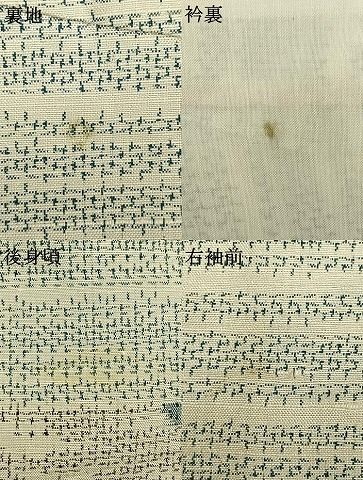 裏地
衿裏
後身頃
右袖前